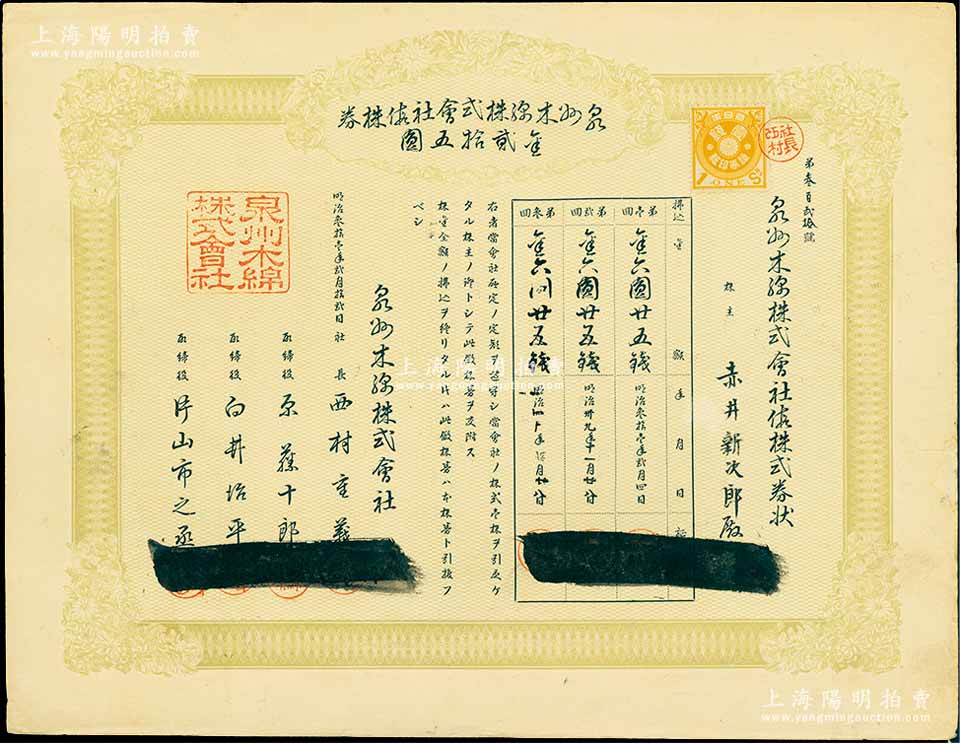 上海陽明拍賣
www.yangmingauction.com
上海陽明拍賣
www.yangmingauction.com
泉州木綿株式會社仮株券
金貳拾五圓
1 ONE Sⁿ
社長西村
第參百貳拾號
泉州木綿株式會社仮株式券状
株主 赤井新次郎殿
拂込金額 年月日
第壱回 金六圓廿五錢 明治參拾壱年貳月四日
第貳回 金六圓廿五錢 明治卅九年十一月廿日
第參回 金六円廿五錢 明治四十年
右者當會社所定ノ定款ヲ遵守シ當會社ノ株式壱株ヲ引受ケ
タル株主ノ御トシテ此仮株券ヲ交附ス
株金全額ノ拂込ヲ終リタル片ハ此仮株券ハ本株券ト引換フ
ベシ
泉州木綿株式會社
明治參拾壱年貳月拾貳日
社長 西村重義
取締役 原 藤十郎
取締役 白井治平
取締役 片山市之丞
泉州木綿
株式會社
上海陽明拍賣
www.yangmingauction.com
上海陽明拍賣
www.yangmingauction.com